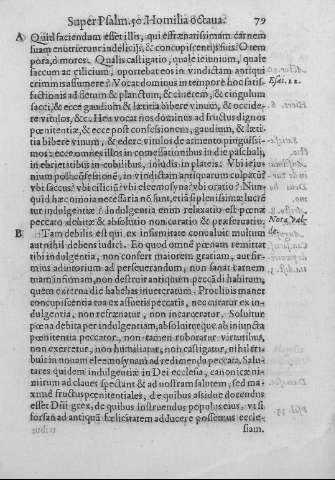 Super Psalm. 50. Homilia octaua. 79
A Quid faciendum esset illis, qui est suam carnem
suam enutrierunt in delicijs, & concupiscentijs suis? O tem
pora, o mores. Qualis castigatio, quale ieiunium, quale
saccum ac cilicium, oportebat eos in vindictam antiqui
crimnis assumere? Vocat dominus in tempore hoc satis-
factionis ad fletum & planctum, & cinerem, & cingulum
sacci, & ecce gaudium & lætitia bibere vinum, & occide-
re vitulos, &c. Hea vocat nos dominus ad fructus dignos
pœnitentiæ, & ecce post confessionem, gaudium & læti-
tia bibere vinum, & edere vitulos de armento pinguissi-
mos: ecce omnes illos in comessationibus in die paschali,
in ebrietatibus in cubilibus, in ludis in plateis. Vbi ieiu-
nium post confessionē, in vindictam antiquarum culparū?
vbi saccus? vbi ciliciū? vbi eleemosyna? vbi oratio? Nun-
quid hæc omnia necessaria nō sunt, etiā si plenissima lucrē
tur indulgentiæ? indulgentia enim relaxatio est pœnæ
peccato debitæ & absolutio non curatio & præseruatio.
B Tam debilis est qui ex infirmitate conualuit multum
aut nihil debens iudici. Eo quod omnē pœnam remittat
tibi indulgentia, non confert maiorem gratiam, aut fir-
mius adiutorium ad perseuerandum, non sanat carnem
tuam infirmam, non destruit antiquum peccādi habitum,
quem externa die habebas inueteratum. Procliuis manet
concupiscentia tua ex assuetis peccatis, nec curatur ex in-
dulgentia, non refrænatur, non incarceratur. Soluitur
pœna debita per indulgentiam, absoluiturque ab iniuncta
pœnitentia peccator, non tamen roboratur virtutibus,
non exercetur, non humiliatur, non castigatur, nihil tri-
buit in nouam eleemosynam ad redimenda peccata. Salu-
tares quidem indulgentiæ in Dei ecclesia, canonicæ ni-
mirum ad claues spectant & ad vestram salutem, sed ma-
ximè fructus pœnitentiales, de quibus assidue docendus
esset Dñi grex, de quibus instruendus populus eius, vt si
forsan ad antiquā fœlicitatem adducere possemus eccle-
siam.
Esai. 22.
Nota. Indul-